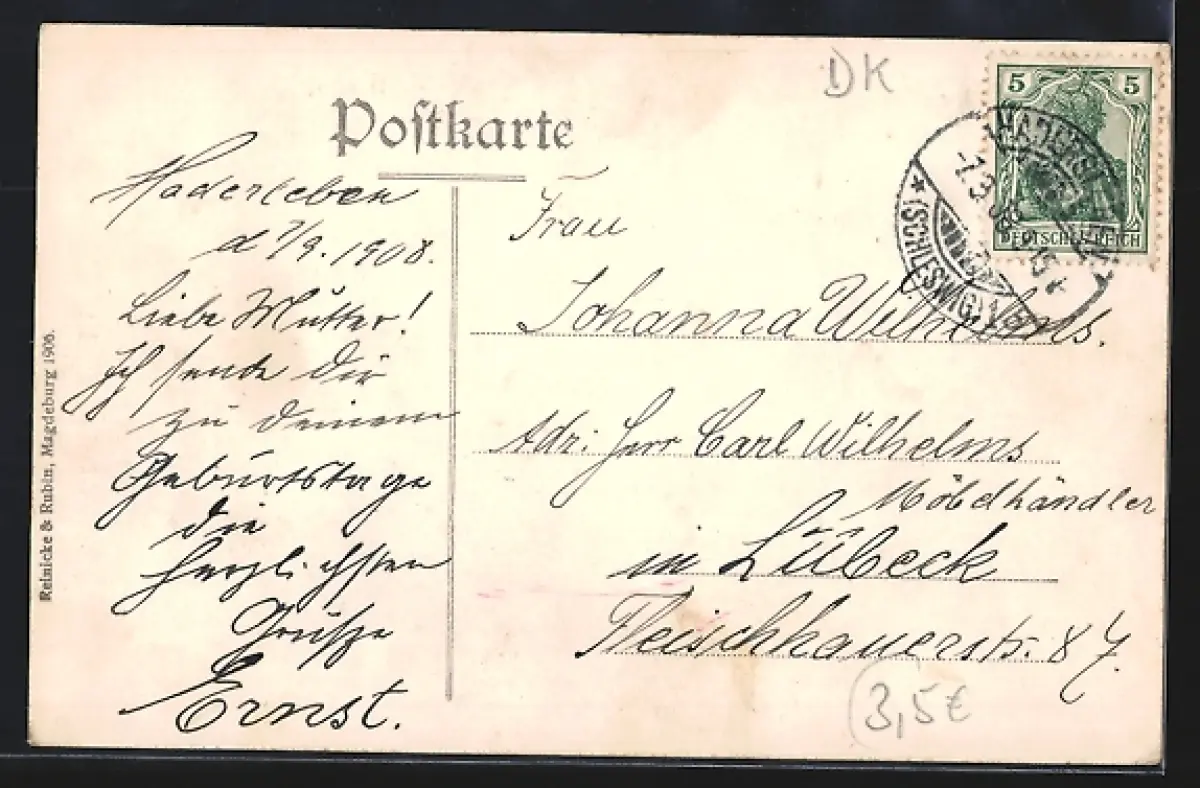 DK
Postkarte
5 5
DEUTSCHES REICH
(SCHLESWIG)
Haderleben
d 7/9. 1908.
Liebe Mutter!
Ich sende dir
zu deinem
Geburtstage
die
herzlichsten
Grüße
Ernst.
Frau
Johanna Wilhelms.
Adr: Herr Carl Wilhelms
Möbelhändler
in Lübeck
Fleischhauerstr. 87.
3,5€
Reinicke & Rubin, Magdeburg 1906.